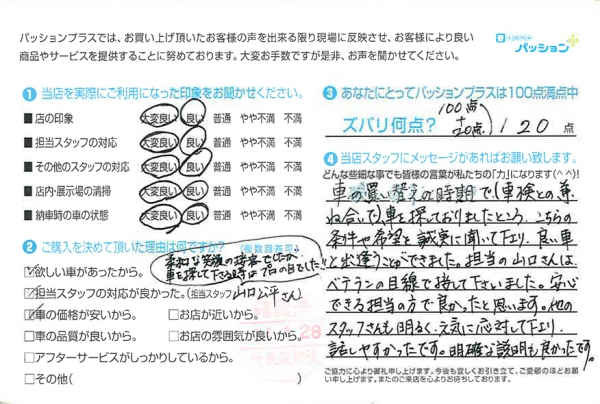 パッションプラスでは、お買い上げ頂いたお客様の声を出来る限り現場に反映させ、お客様により良い
商品やサービスを提供することに努めております。大変お手数ですが是非、お声を聞かせてください。
パッション
① 当店を実際にご利用になった印象をお聞かせください。
■ 店の印象 大変良い 良い 普通 やや不満 不満
■ 担当スタッフの対応 大変良い 良い 普通 やや不満 不満
■ その他のスタッフの対応 大変良い 良い 普通 やや不満 不満
■ 店内・展示場の清掃 大変良い 良い 普通 やや不満 不満
■ 納車時の車の状態 大変良い 良い 普通 やや不満 不満
② ご購入を決めて頂いた理由は何ですか?(複数回答可)
柔和な笑顔の接客でしたが
車を探して下さる時はプロの目でした!!
☑欲しい車があったから。
☑担当スタッフの対応が良かった。(担当スタッフ 山口公平さん
☑車の価格が安いから。 □お店が近いから。
□車の品質が良いから。 □お店の雰囲気が良いから。
□アフターサービスがしっかりしているから。
□その他( )
28
③ あなたにとってパッションプラスは100点満点中
ズバリ何点? (100点+20点) 120 点
④ 当店スタッフにメッセージがあればお願い致します。
どんな些細な事でも皆様の言葉が私たちの「力」になります(^^)!
車の買い替えの時期で(車検との兼
ね合いで)、車を探しておりましたところ、こちらの
条件や希望を誠実に聞いて下り、良い車
と出逢うことができました。担当の山口さんは、
ベテランの目線で接して下さいました。安心
できる担当の方で良かったと思います。他の
スタッフさんも明るく、元気に応対して下り、
話しやすかったです。明確な説明も良かったです。
ご協力に心より御礼申し上げます。今後も宜しくお引き立て、ご愛顧のほどお願
い申し上げます。またのご来店を心よりお待ちしております。